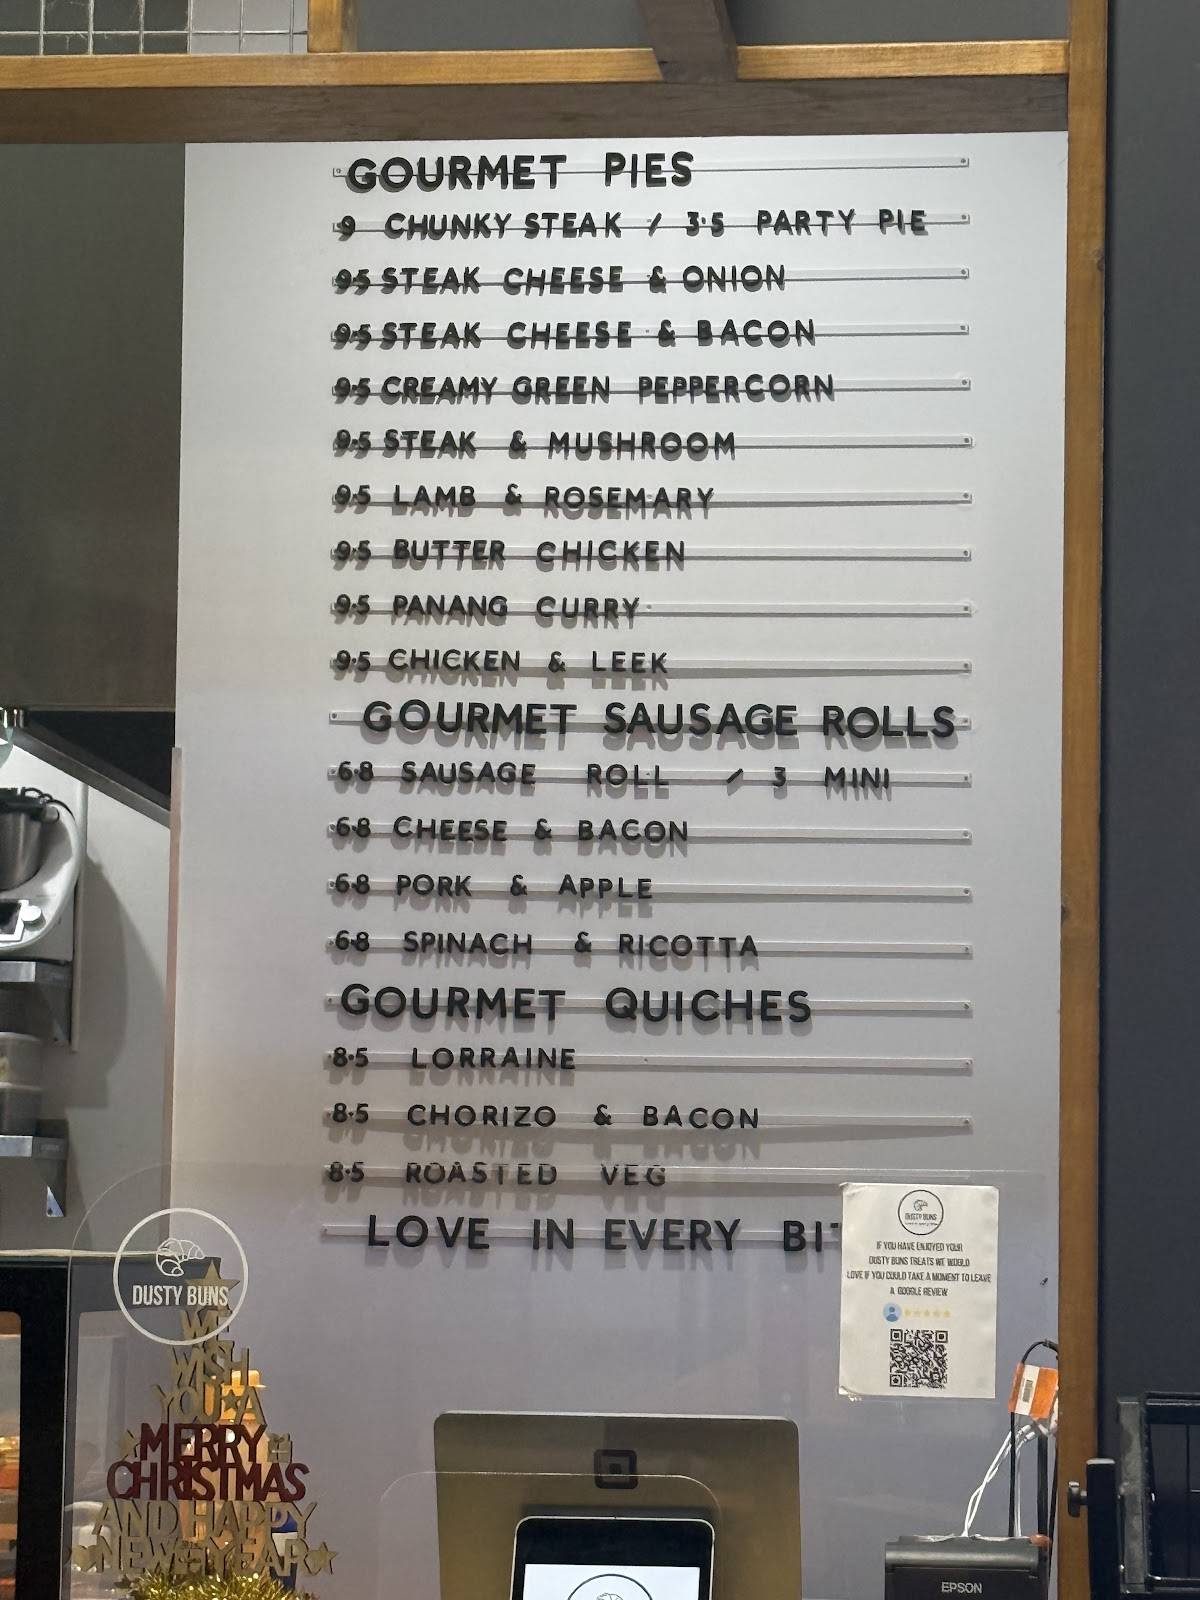 GOURMET PIES
9 CHUNKY STEAK / 3.5 PARTY PIE
9.5 STEAK CHEESE & ONION
9.5 STEAK CHEESE & BACON
9.5 CREAMY GREEN PEPPERCORN
9.5 STEAK & MUSHROOM
9.5 LAMB & ROSEMARY
9.5 BUTTER CHICKEN
9.5 PANANG CURRY
9.5 CHICKEN & LEEK
GOURMET SAUSAGE ROLLS
6.8 SAUSAGE ROLL / 3 MINI
6.8 CHEESE & BACON
6.8 PORK & APPLE
6.8 SPINACH & RICOTTA
GOURMET QUICHES
8.5 LORRAINE
8.5 CHORIZO & BACON
8.5 ROASTED VEG
LOVE IN EVERY
DUSTY BUNS
IF YOU HAVE ENJOYED YOUR
DUSTY BUNS TREATS WE WOULD
LOVE IF YOU COULD TAKE A MOMENT TO LEAVE
A GOOGLE REVIEW
DUSTY BUNS
WE
WISH
YOU A
MERRY
CHRISTMAS
AND HAPPY
NEW YEAR
EPSON